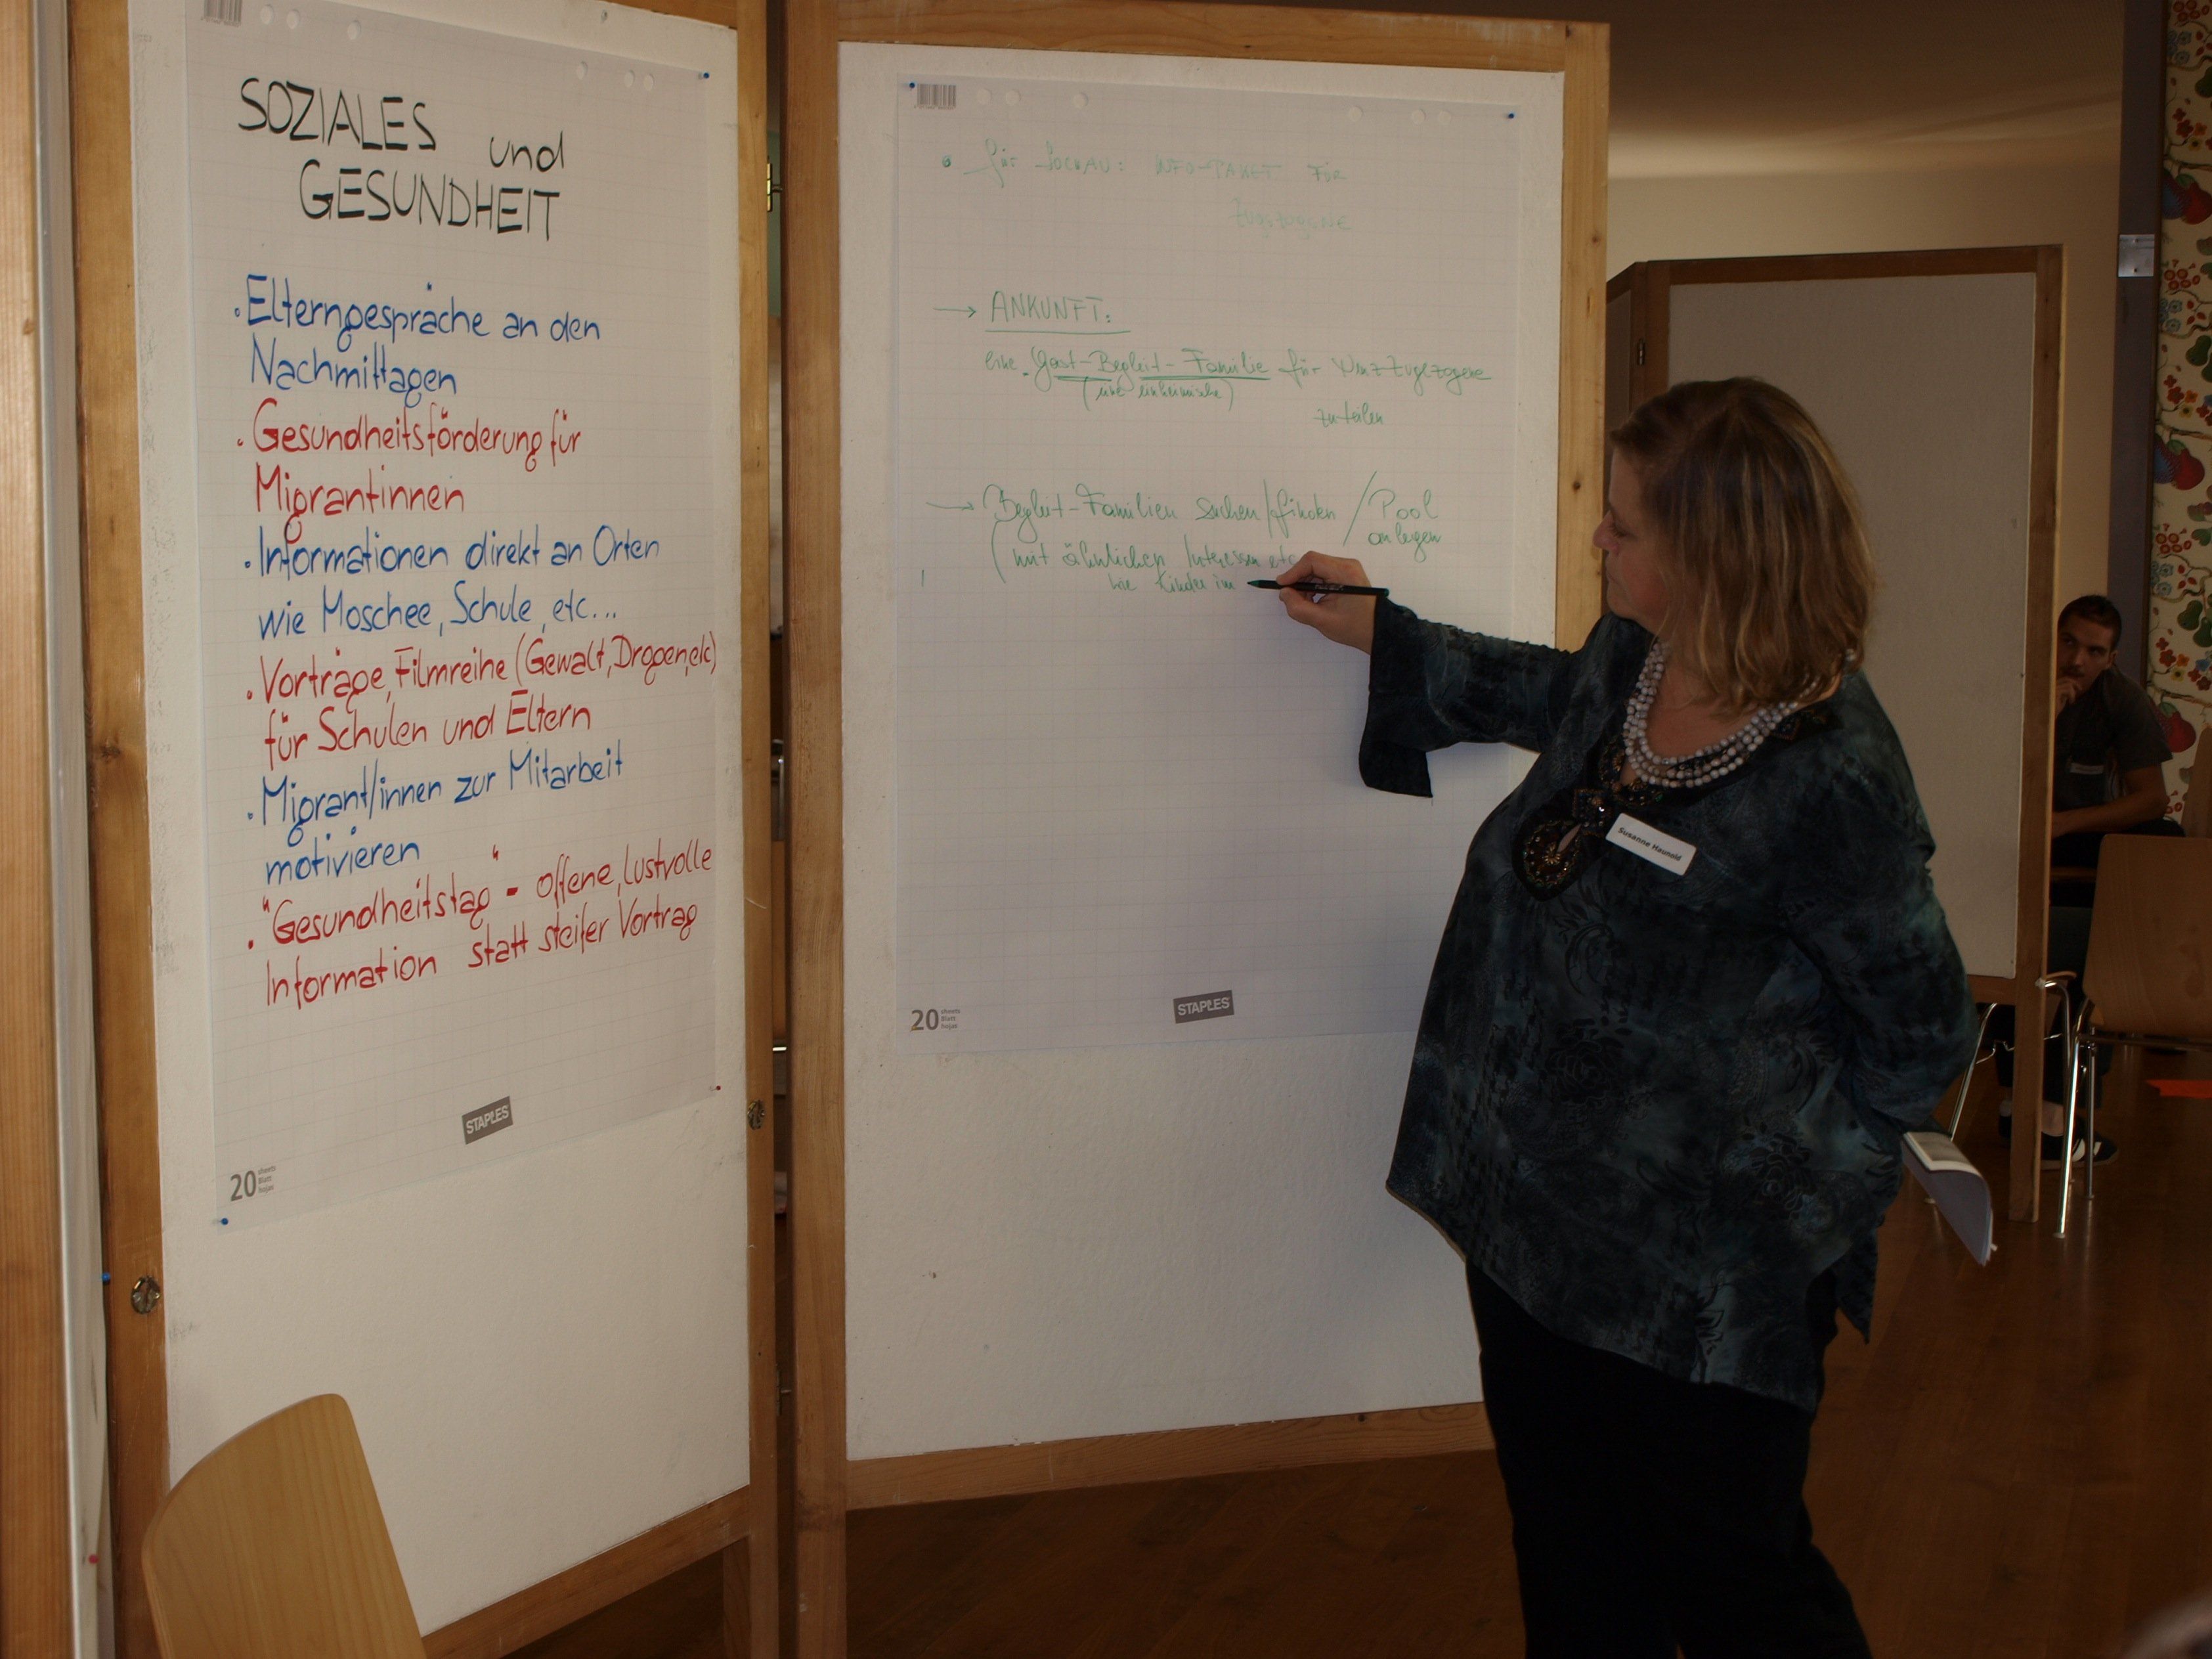 SOZIALES und
GESUNDHEIT
. Elterngespräche an den
Nachmittagen
. Gesundheitsförderung für
Migrantinnen
. Informationen direkt an Orten
wie Moschee, Schule, etc...
. Vorträge, Filmreihe (Gewalt, Drogen, etc)
für Schulen und Eltern
. Migrant/innen zur Mitarbeit
motivieren
. "Gesundheitstag" - offene, lustvolle
Information statt steifer Vortrag
STAPLES
20 sheets
Blatt
hojas
• für INFO-PAKET FÜR
Zugezogene
→ ANKUNFT:
eine Gast-Begleit-Familie für zugezogene
(eine einheimische)
zuteilen
→ Begleit-Familien suchen/finden / Pool
anlegen
(mit ähnlichen Interessen etc
wie Kinder im
20 sheets
Blatt
hojas
STAPLES
Susanne Haunold